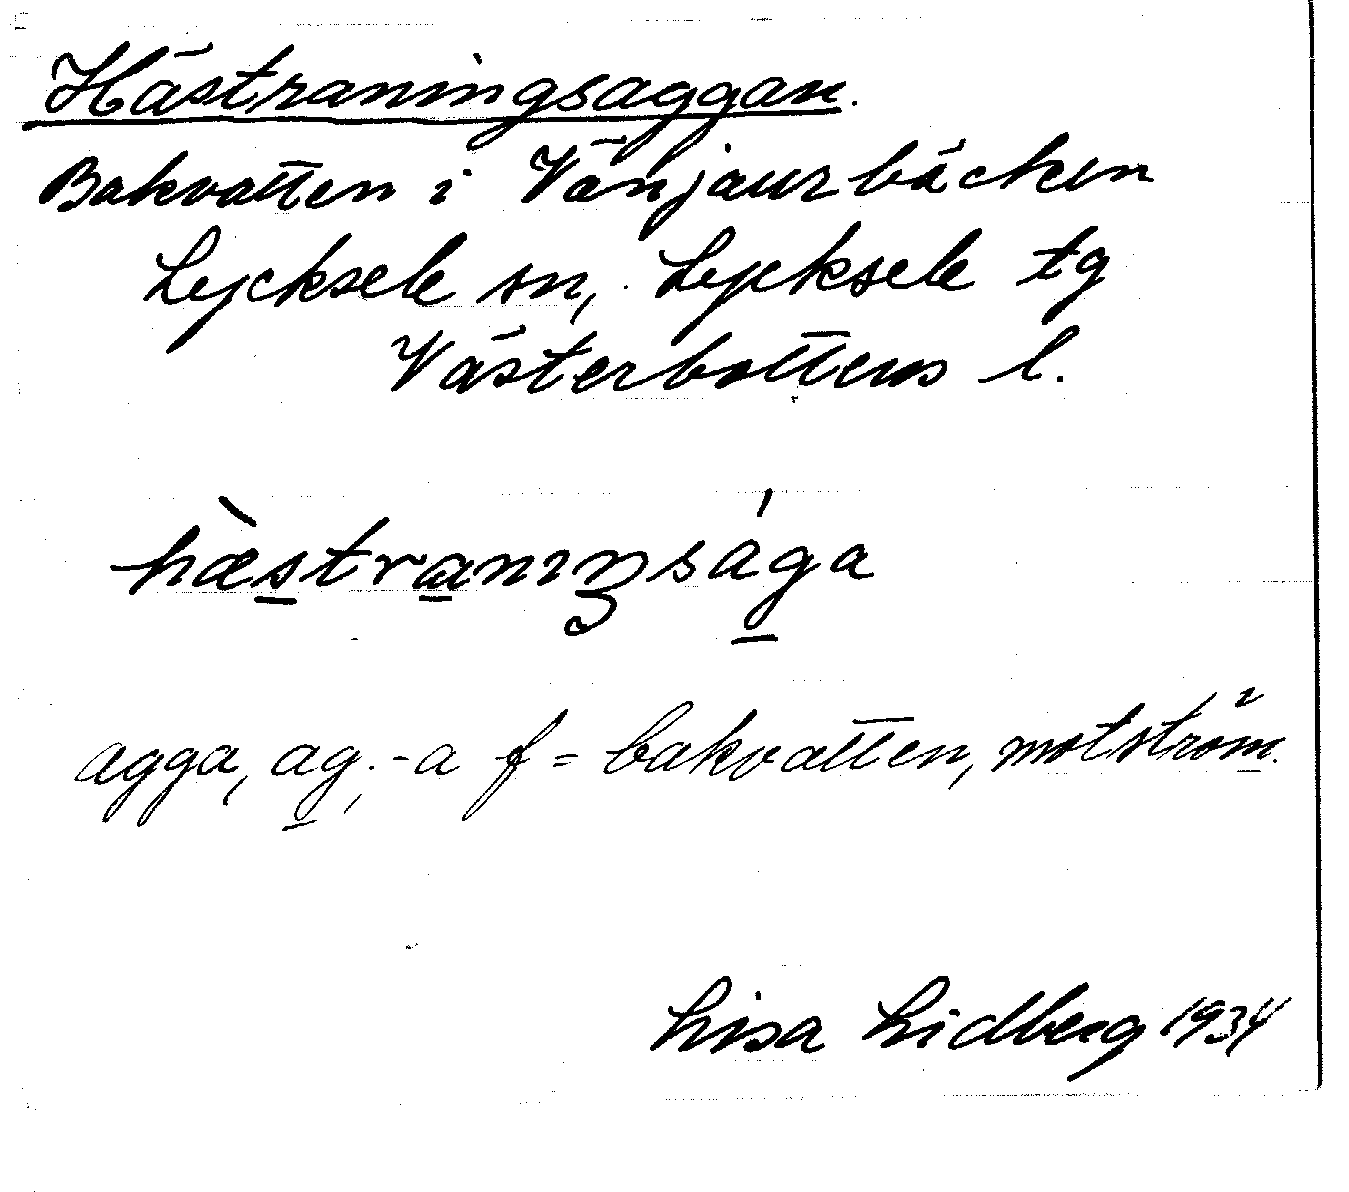 Hästraningsaggan.
Bakvatten i Vänjaurbäcken
Lycksele sn, Lycksele tg
Västerbottens l.
hæ̀stranıŋsága
agga, ag, -a f = bakvatten, motström.
Lisa Lidberg 1934